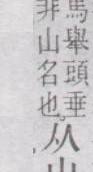 馬舉頭垂
非山名也。从山